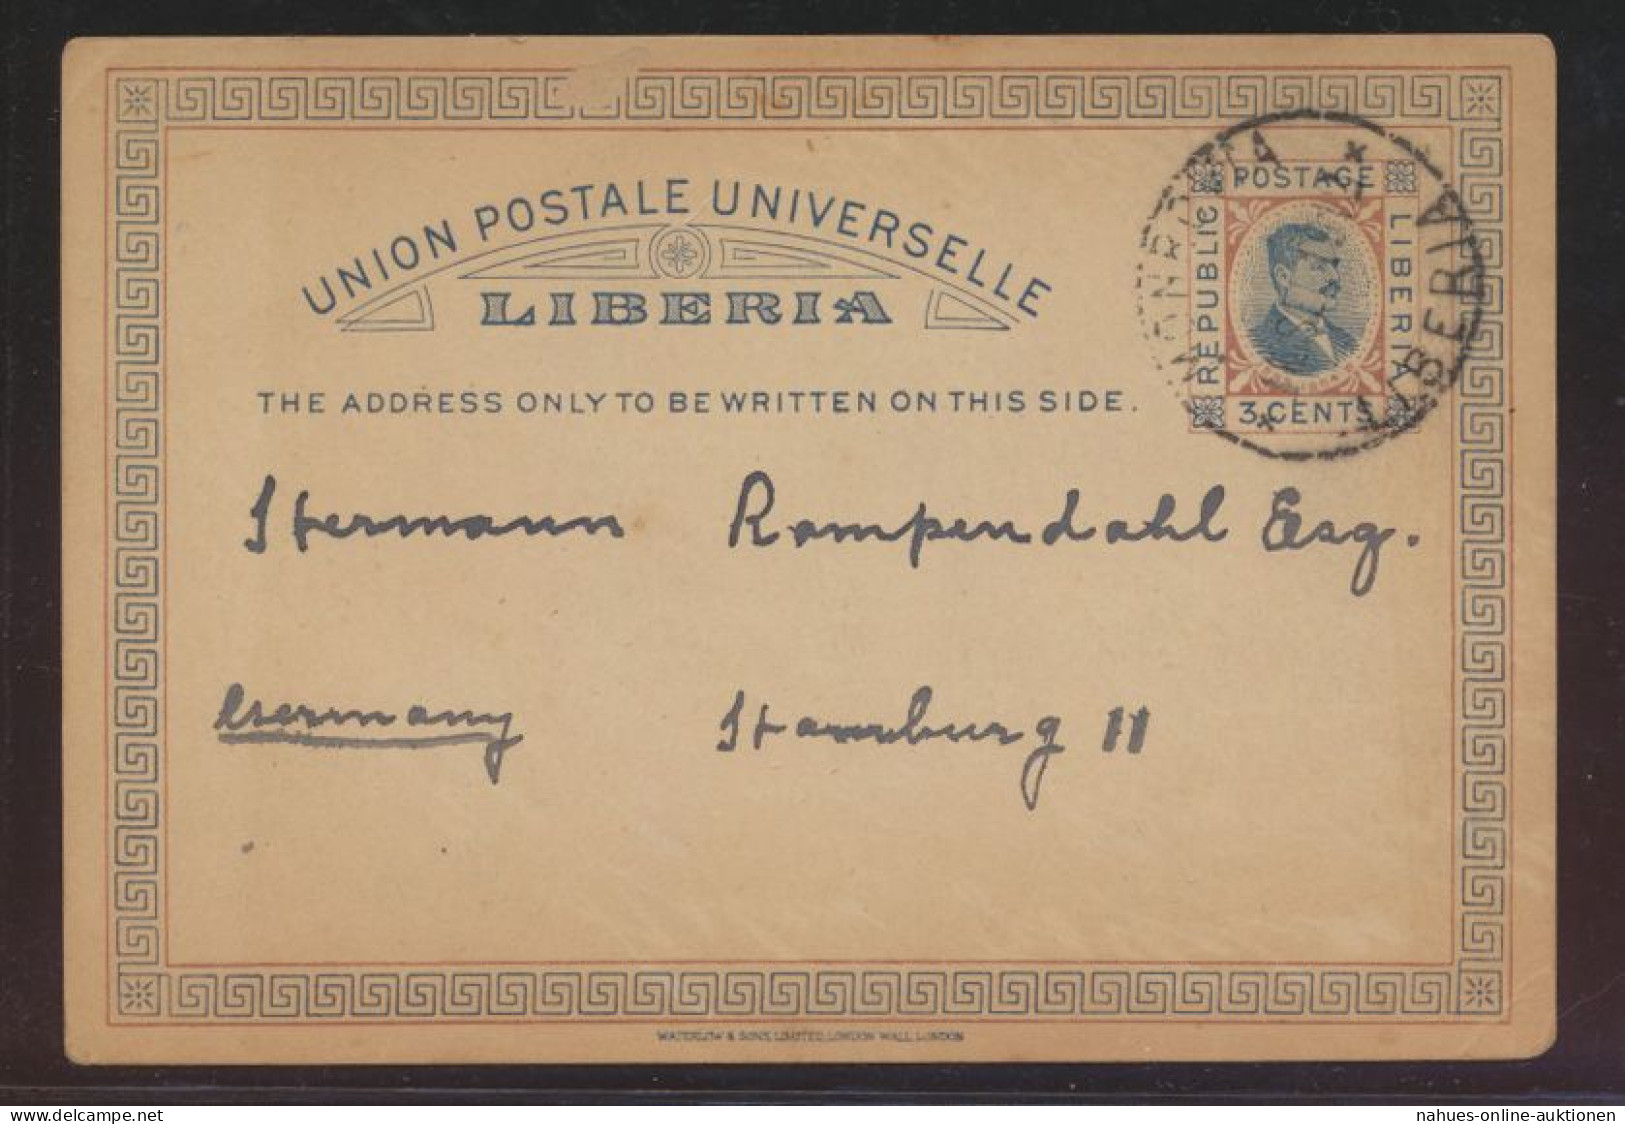 UNION POSTALE UNIVERSELLE
LIBERIA
THE ADDRESS ONLY TO BE WRITTEN ON THIS SIDE.
POSTAGE
REPUBLIC
LIBERIA
3 CENTS
MONROVIA
LIBERIA
Hermann Rompendahl Esq.
Germany Hamburg 11
WATERLOW & SONS, LIMITED, LONDON WALL, LONDON
www.delcampe.net
nahues-online-auktionen